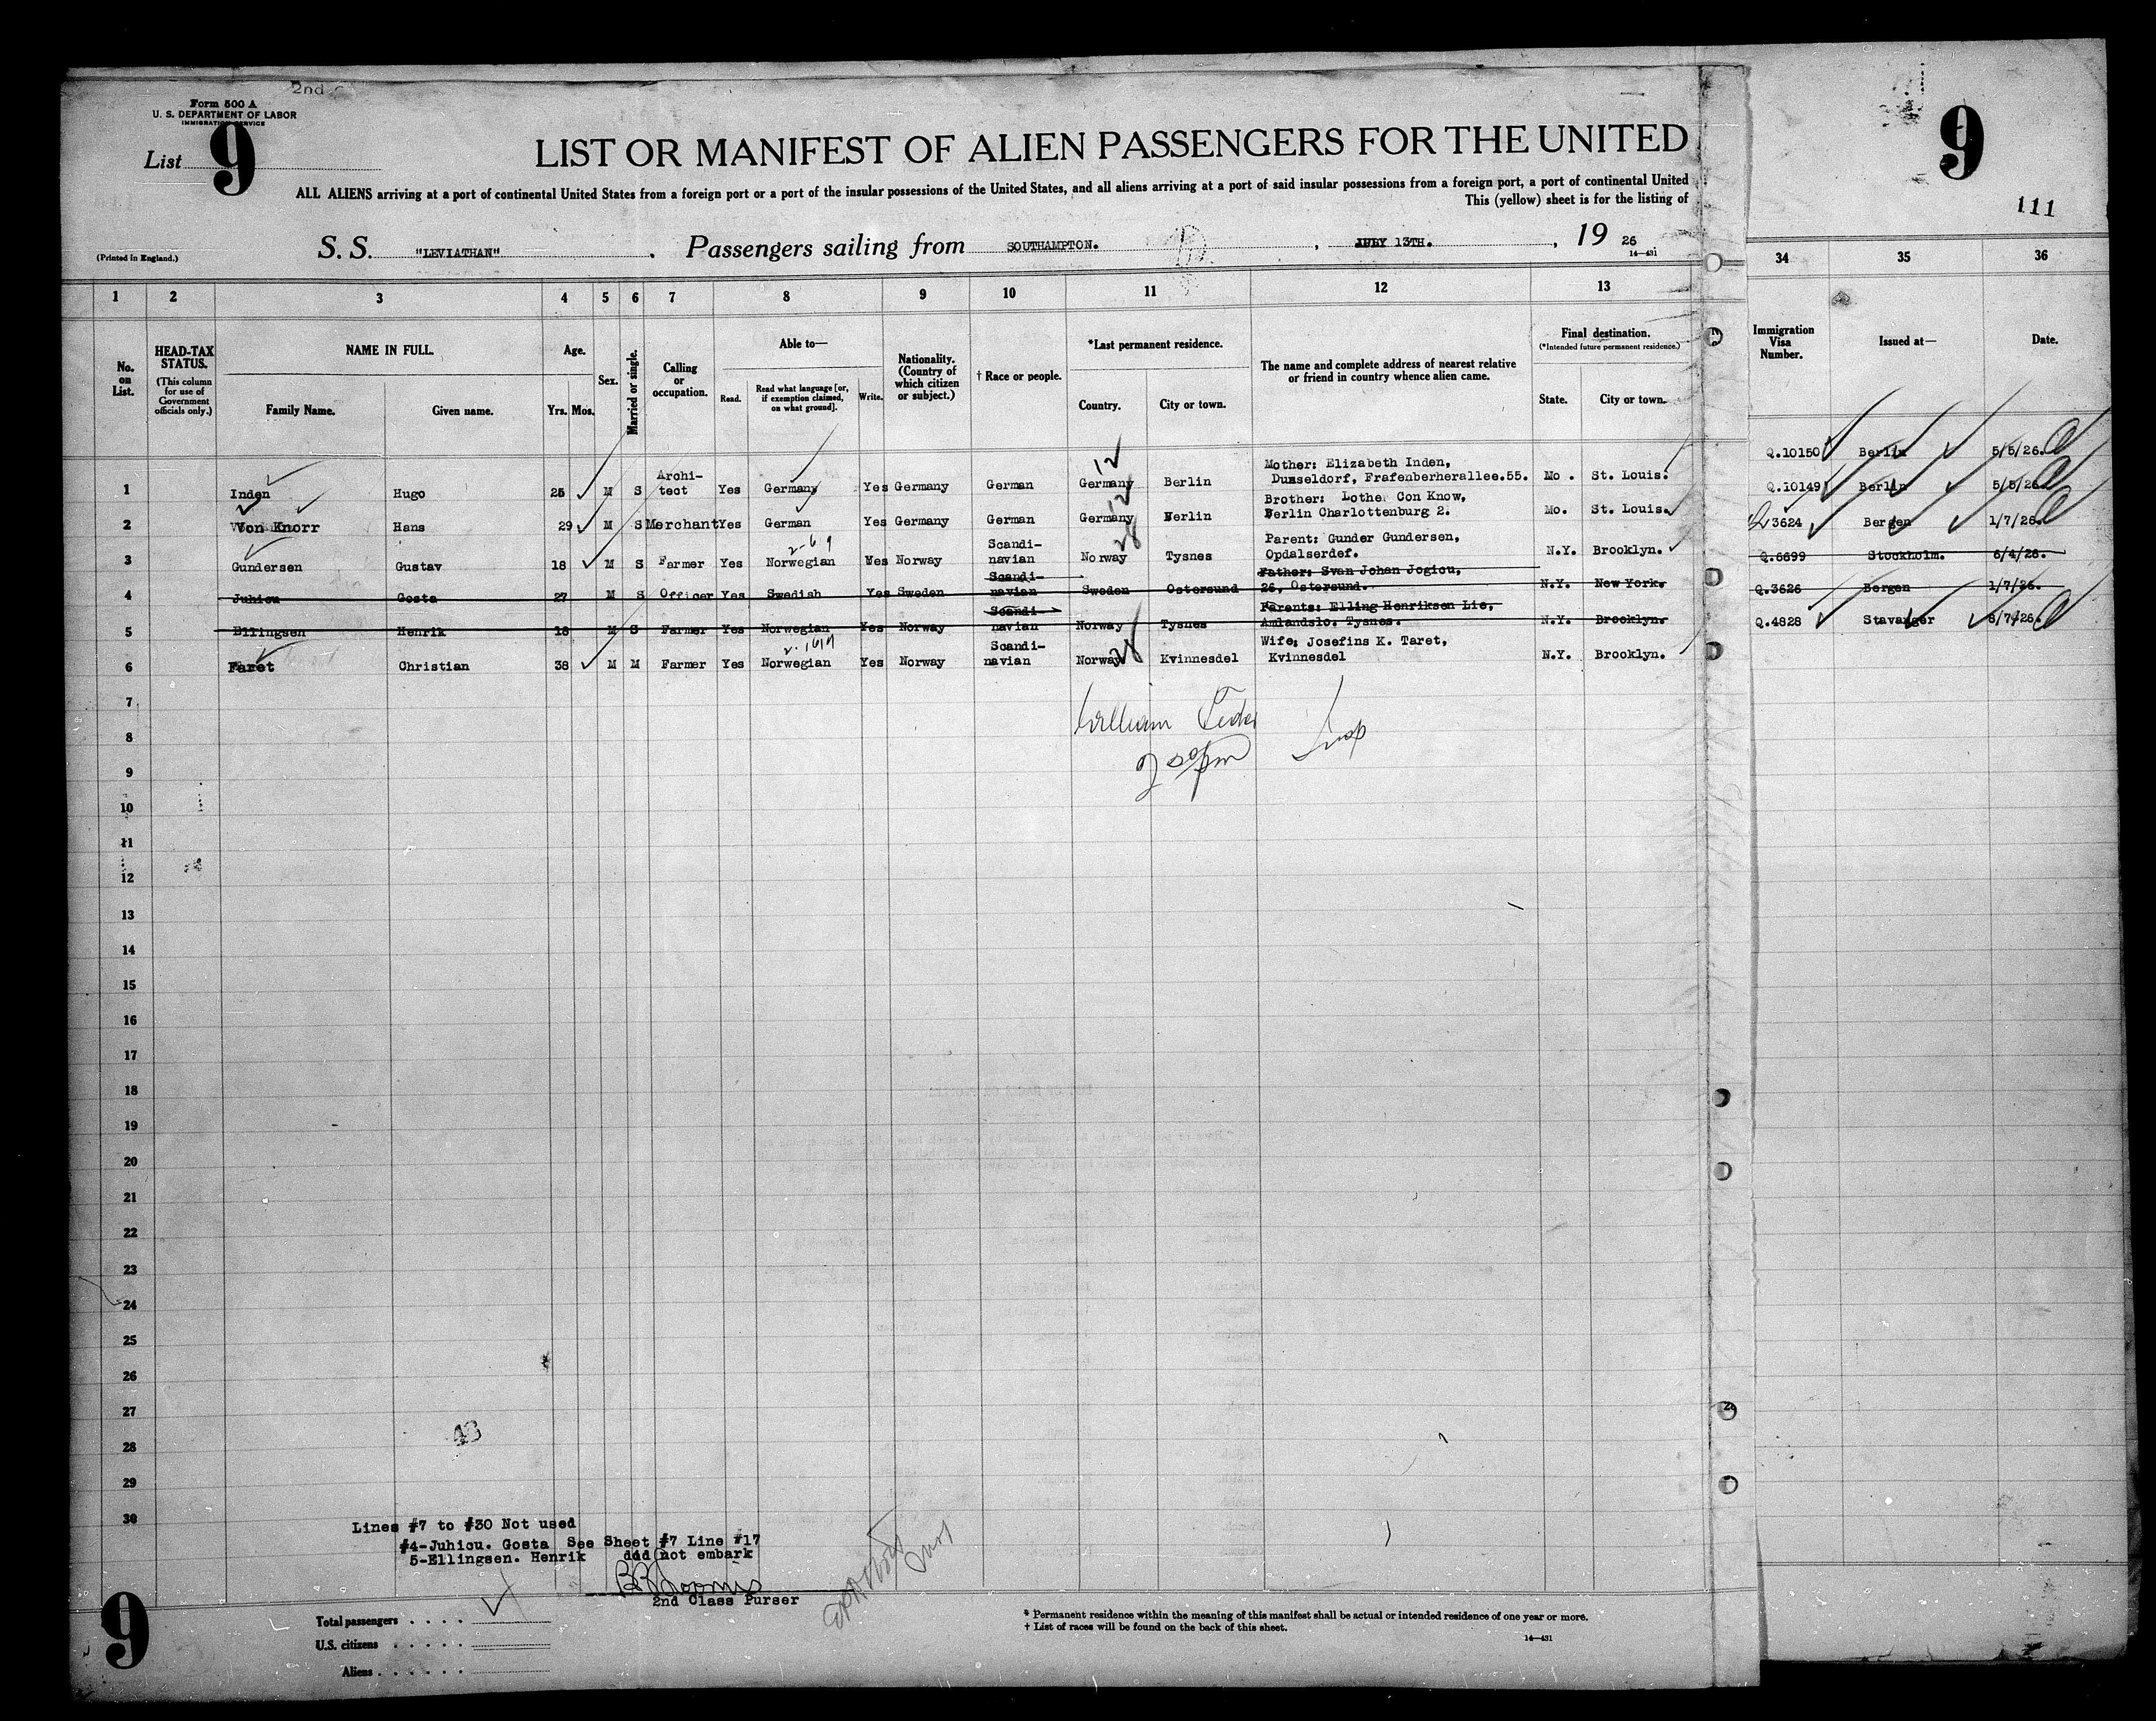 2nd
Form 500 A
U. S. DEPARTMENT OF LABOR
IMMIGRATION SERVICE
List 9
LIST OR MANIFEST OF ALIEN PASSENGERS FOR THE UNITED
ALL ALIENS arriving at a port of continental United States from a foreign port or a port of the insular possessions of the United States, and all aliens arriving at a port of said insular possessions from a foreign port, a port of continental United
This (yellow) sheet is for the listing of
(Printed in England.)
S. S. "LEVIATHAN" . Passengers sailing from SOUTHAMPTON. , JULY 13TH. , 19 26
14—431
9
111
1 2 3 4 5 6 7 8 9 10 11 12 13 34 35 36
No. on List.
HEAD-TAX STATUS.
(This column for use of Government officials only.)
NAME IN FULL.
Family Name. Given name.
Age.
Yrs. Mos.
Sex.
Married or single.
Calling or occupation.
Able to—
Read. Read what language [or, if exemption claimed, on what ground]. Write.
Nationality. (Country of which citizen or subject.)
† Race or people.
*Last permanent residence.
Country. City or town.
The name and complete address of nearest relative or friend in country whence alien came.
Final destination.
(*Intended future permanent residence.)
State. City or town.
Immigration Visa Number.
Issued at—
Date.
1 Inden Hugo 25 M S Architect Yes Germany Yes Germany German Germany Berlin Mother: Elizabeth Inden, Dusseldorf, Frafenberherallee.55. Mo. St. Louis. Q.10150 Berlin 5/5/26.
2 Von Knorr Hans 29 M S Merchant Yes German Yes Germany German Germany Berlin Brother: Lothe Con Know, Berlin Charlottenburg 2. Mo. St. Louis. Q.10149 Berlin 5/5/26.
3 Gundersen Gustav 18 M S Farmer Yes Norwegian Yes Norway Scandi-navian Norway Tysnes Parent: Gunder Gundersen, Opdalserdef. N.Y. Brooklyn. 3624 Bergen 1/7/26.
4 Juhicu Gosta 27 M S Officer Yes Swedish Yes Sweden Scandi-navian Sweden Ostersund Father: Svan Johan Jogicu, 26, Ostersund. N.Y. New York. Q.6699 Stockholm. 6/4/26.
5 Ellingsen Henrik 18 M S Farmer Yes Norwegian Yes Norway Scandi-navian Norway Tysnes Parents: Elling Henriksen Lie, Amlandslo. Tysnes. N.Y. Brooklyn. Q.3626 Bergen 1/7/26.
6 Faret Christian 38 M M Farmer Yes Norwegian Yes Norway Scandi-navian Norway Kvinnesdel Wife: Josefins K. Taret, Kvinnesdel N.Y. Brooklyn. Q.4828 Stavanger 6/7/26.
7
William
8
Insp
9
10
11
12
13
14
15
16
17
18
19
20
21
22
23
24
25
26
27
43
28
29
30
Lines #7 to #30 Not used
#4-Juhicu. Gosta See Sheet #7 Line #17
5-Ellingsen. Henrik did not embark
2nd Class Purser
9
Total passengers . . . .
U.S. citizens . . . . .
Aliens . . . . . .
* Permanent residence within the meaning of this manifest shall be actual or intended residence of one year or more.
† List of races will be found on the back of this sheet.
14—431